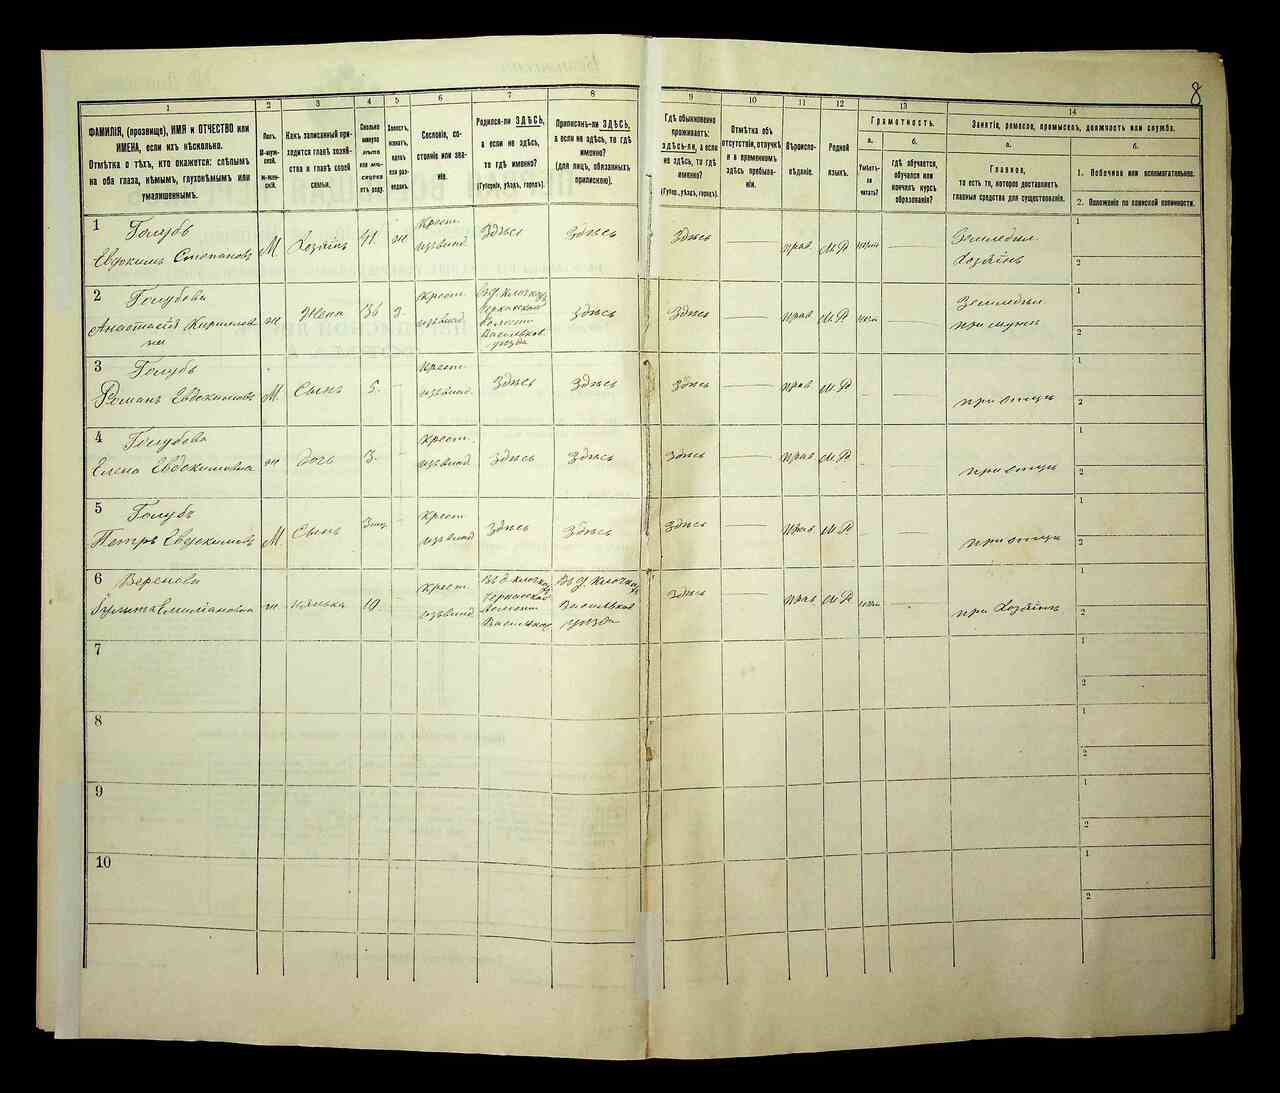 8
1
2
3
4
5
6
7
8
9
10
11
12
13
14
ФАМИЛІЯ, (прозвище), ИМЯ и ОТЧЕСТВО или
ИМЕНА, если ихъ нѣсколько.
Отмѣтка о тѣхъ, кто окажется: слѣпымъ
на оба глаза, нѣмымъ, глухонѣмымъ или
умалишеннымъ.
Полъ.
М-муж-
ской.
Ж-жен-
скій.
Какъ записанный при-
ходится главѣ хозяй-
ства и главѣ своей
семьи.
Сколько
минуло
лѣтъ
или мѣ-
сяцевъ
отъ роду.
Холостъ,
женатъ,
вдовъ
или раз-
веденъ.
Сословіе, со-
стояніе или зва-
ніе.
Родился-ли ЗДѢСЬ,
а если не здѣсь,
то гдѣ именно?
(Губернія, уѣздъ, городъ).
Приписанъ-ли ЗДѢСЬ,
а если не здѣсь, то гдѣ
именно?
(для лицъ, обязанныхъ
припискою).
Гдѣ обыкновенно
проживаетъ:
ЗДѢСЬ-ли, а если
не здѣсь, то гдѣ
именно?
(Губер., уѣздъ, городъ).
Отмѣтка объ
отсутствіи, отлучкѣ
и о временномъ
здѣсь пребыва-
ніи.
Вѣроиспо-
вѣданіе.
Родной
языкъ.
Грамотность.
а.
б.
Умѣетъ-
ли
читать?
гдѣ обучается,
обучался или
кончилъ курсъ
образованія?
Занятіе, ремесло, промыселъ, должность или служба.
а.
б.
Главное,
то есть то, которое доставляетъ
главныя средства для существованія.
1. Побочное или вспомогательное.
2. Положеніе по воинской повинности.
1
Голубъ
Евдокимъ Степановъ
М
Хозяинъ
41.
ж
Крест.
Здѣсь
Здѣсь
Здѣсь
прав.
М.Р.
Земледѣл.
Хозяинъ
1
2
2
Голубова
Анастасія Кириллов
ж
Жена
36
Крест.
Черкасской
Волости
Васильков.
уѣзда
здѣсь
Здѣсь
прав.
М.Р.
Земледѣл.
при мужѣ
1
2
3
Голубъ
Романъ Евдокимовъ
М.
Сынъ
5.
Крест.
Здѣсь
Здѣсь
Здѣсь
прав.
М.Р.
при отцѣ
1
2
4
Голубова
Елена Евдокимовна
ж
дочь
3.
Крест.
здѣсь
Здѣсь
Здѣсь
прав.
М.Р.
при отцѣ
1
2
5
Голубъ
Петръ Евдокимовъ
М.
Сынъ
Крест.
Здѣсь
Здѣсь
Здѣсь
прав.
М.Р.
при отцѣ
1
2
6
ж
нянька
10.
Крест.
Черкасской
Волости
Васильков
уѣзда
Здѣсь
прав.
М.Р.
при Хозяинѣ
1
2
7
1
2
8
1
2
9
1
2
10
1
2